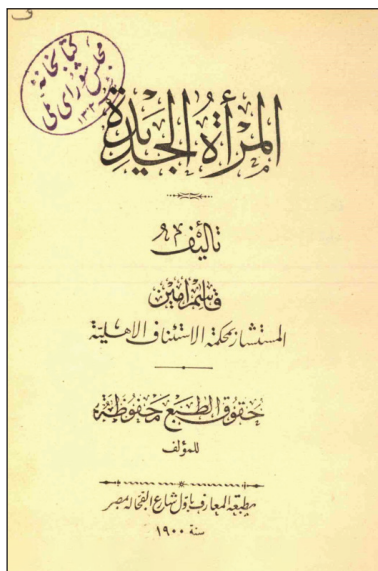 كتابخانه
مجلس شورای ملی
المرأة الجديدة
تأليف
قاسم امين
المستشار بمحكمة الاستئناف الاهلية
حقوق الطبع محفوظة
للمؤلف
مطبعة المعارف باول شارع الفجاله بمصر
سنة ١٩٠٠